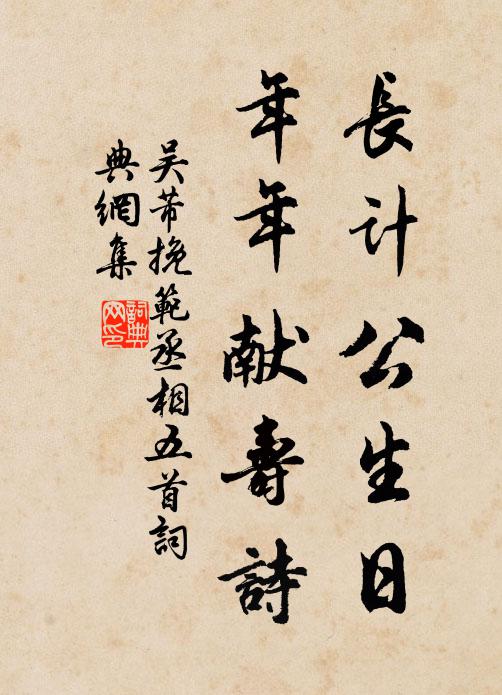 長计公生日
年年献壽詩
吴芾挽範丞相五首詞
典網集
詞典
网印